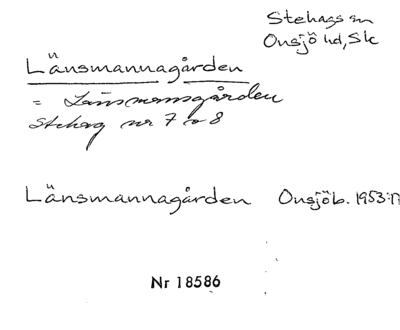 Stehags sn
Onsjö hd, Sk
Länsmannagården
= Länsmansgården
Stehag nr 7 o 8
Länsmannagården Onsjöb. 1953:17
Nr 18586